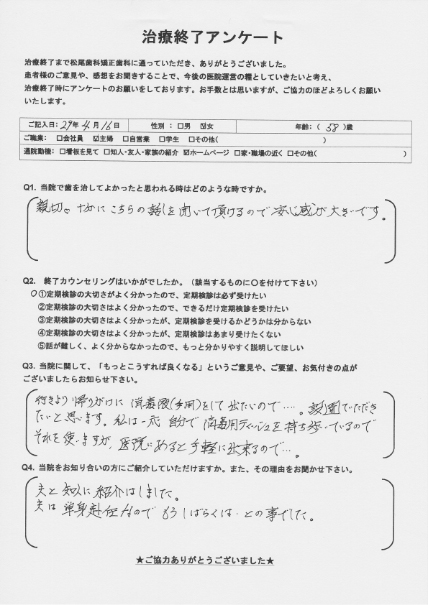 治療終了アンケート
治療終了まで松尾歯科矯正歯科に通っていただき、ありがとうございました。
患者様のご意見や、感想をお聞きすることで、今後の医院運営の糧としていきたいと考え、
治療終了時にアンケートのお願いをしております。お手数とは思いますが、ご協力のほどよろしくお願い
いたします。
ご記入日：29年 4月 16日 性別：□男 ☑女 年齢：（ 58 ）歳
ご職業： □会社員 ☑主婦 □自営業 □学生 □その他（ ）
通院動機：□看板を見て □知人・友人・家族の紹介 ☑ホームページ □家・職場の近く □その他（ ）
Q1. 当院で歯を治してよかったと思われる時はどのような時ですか。
親切。 こちらの話しを聞いて頂けるので 安心感が大きいです。
Q2. 終了カウンセリングはいかがでしたか。（該当するものに〇を付けて下さい）
〇①定期検診の大切さがよく分かったので、定期検診は必ず受けたい
②定期検診の大切さはよく分かったので、できるだけ定期検診を受けたい
③定期検診の大切さはよく分かったが、定期検診を受けるかどうかは分からない
④定期検診の大切さはよく分かったが、定期検診はあまり受けたくない
⑤話が難しく、よく分からなかったので、もっと分かりやすく説明してほしい
Q3. 当院に関して、「もっとこうすれば良くなる」というご意見や、ご要望、お気付きの点が
ございましたらお知らせ下さい。
行きより帰りがけに 消毒液(手用)をして出たいので…。設置していただき
たいと思います。私は一応 自分で 消毒用ティッシュを持ち歩いているので
それを使いますが、医院にあると手軽に出来るので…。
Q4. 当院をお知り合いの方にご紹介していただけますか。また、その理由をお聞かせ下さい。
夫と知人に紹介はしました。
夫は 単身赴任なので もうしばらくは…との事でした。
★ご協力ありがとうございました★